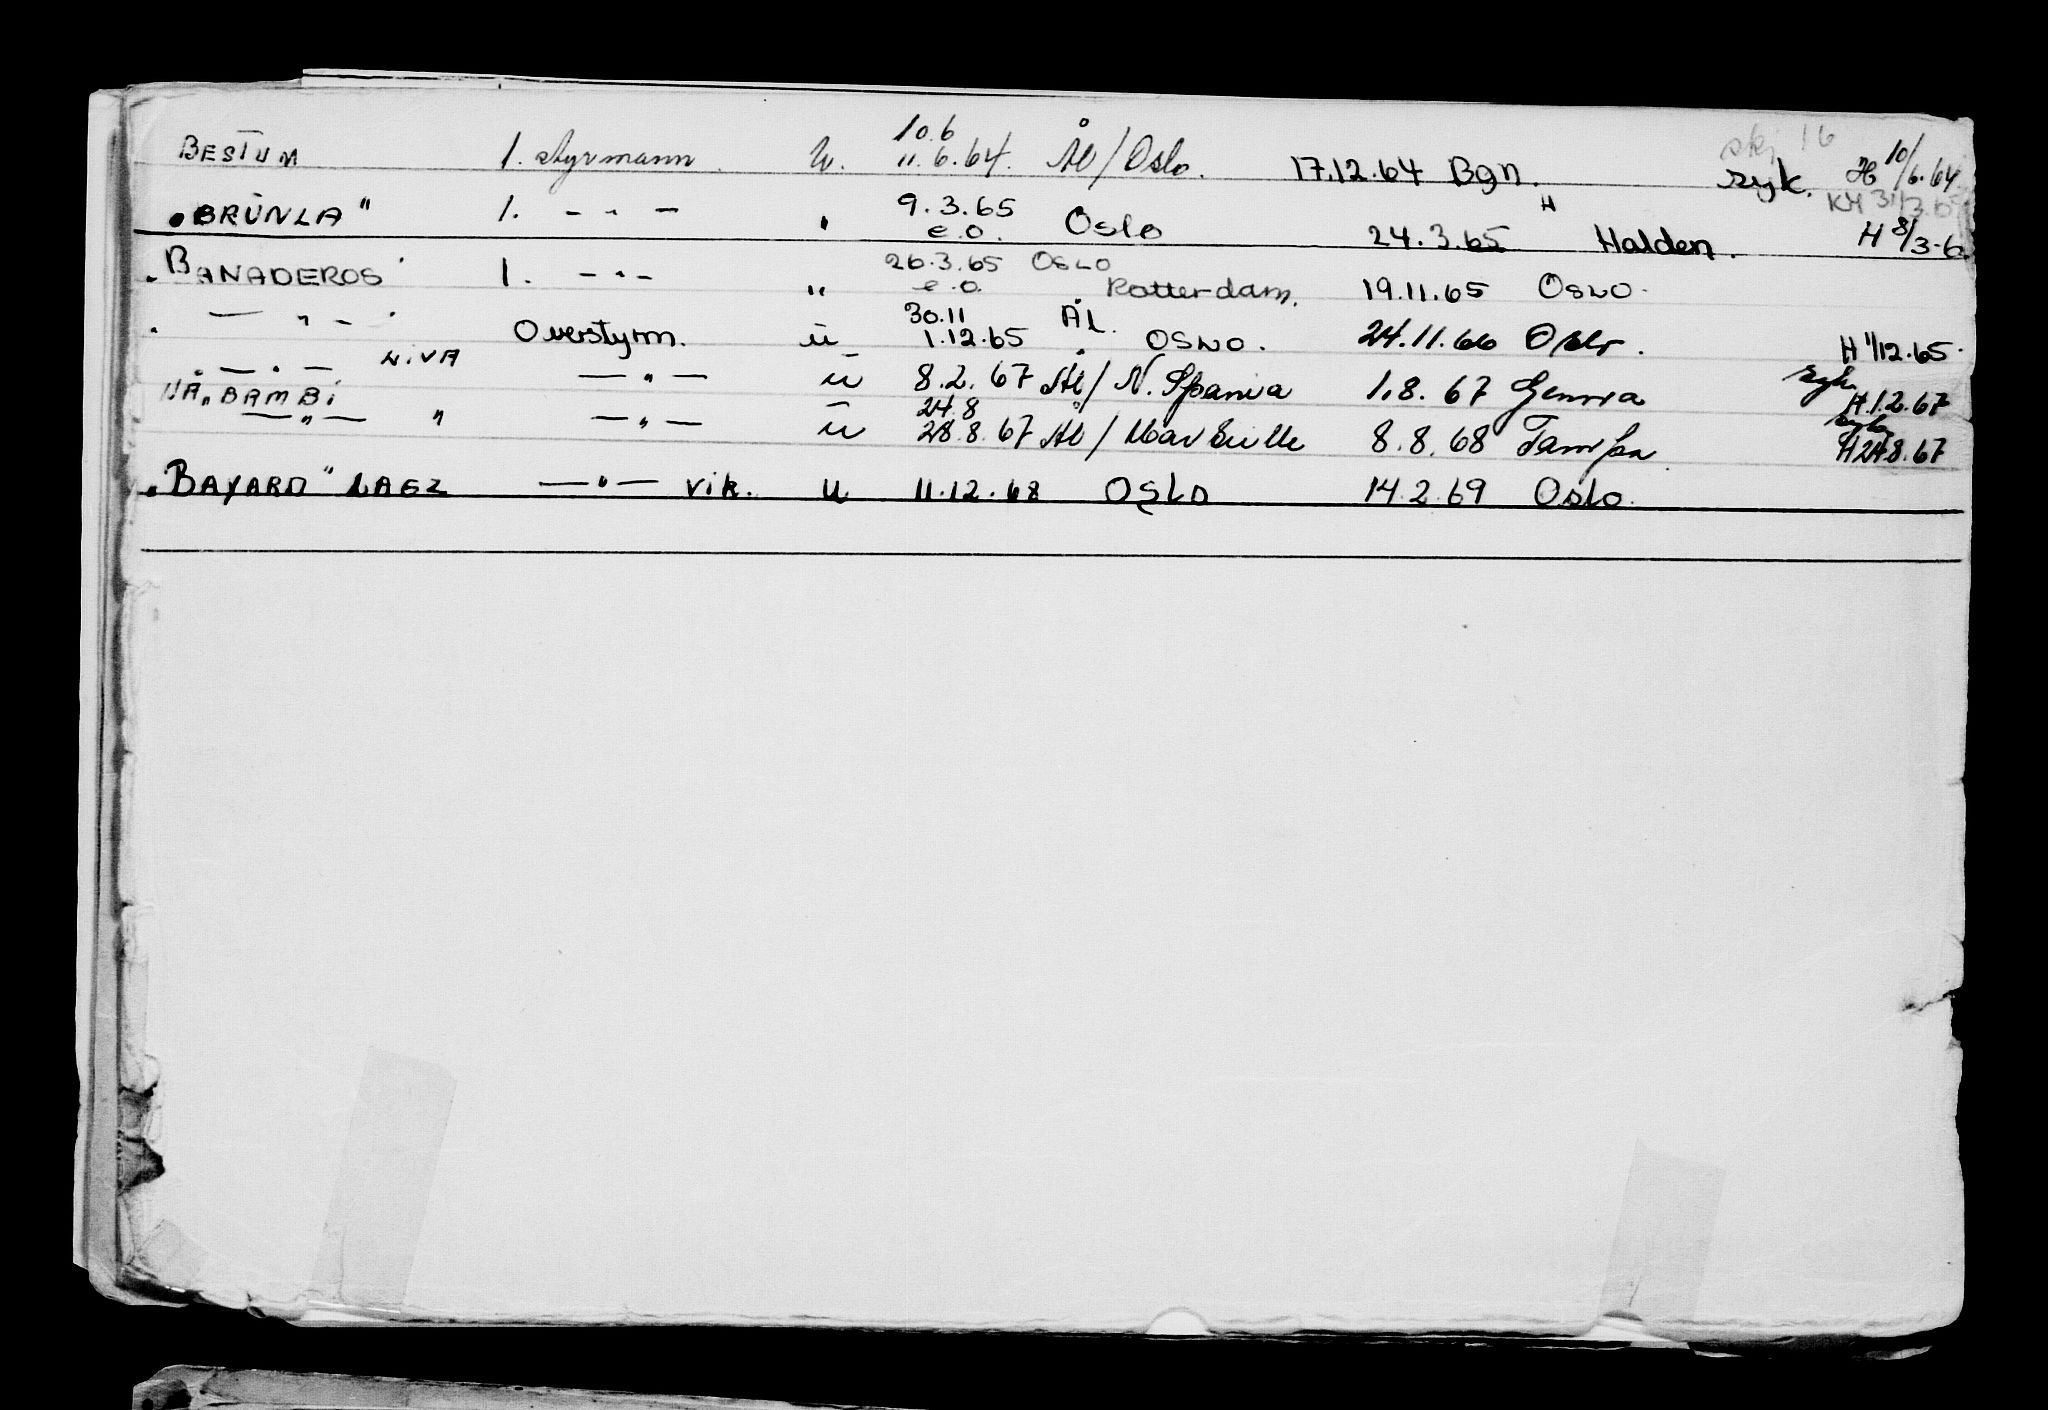 10.6 skj 16
BESTUM 1. styrmann u. 11.6.64. Ål/Oslo. 17.12.64 Bgn. syk. H 10/6.64
KH 31/3.65
„BRÜNLA" 1. - " - " 9.3.65 e.o. Oslo 24.3.65 " Halden. H 8/3-6
„BANADEROS" 1. - " - " 26.3.65 OSLO e.o. Rotterdam. 19.11.65 OSLO.
30.11 ÅL.
" — " — " Overstyrm. u 1.12.65 OSLO. 24.11.66 Oslo. H 1/12.65.
" — " — LIVA — " — u 8.2.67 Ål/N. Spania 1.8.67 Genova syk. H.1.2.67
NÅ „BAMBI 24.8 syk
— " — " — " — u 28.8.67 Ål/Marseille 8.8.68 Tampa H 24.8.67
„BAYARD" — " — vik. u 11.12.68 OSLO 14.2.69 Oslo.